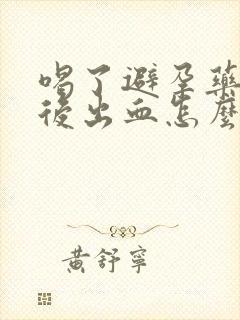 喝了避孕藥
後出血怎麼
黃舒寧